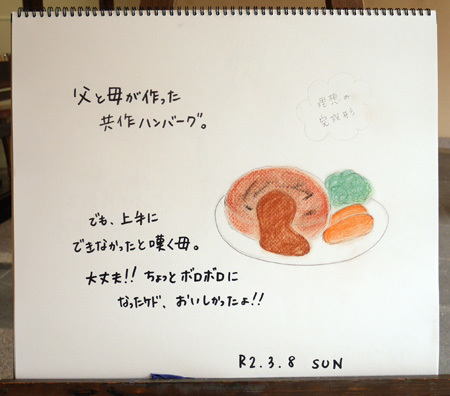 父と母が作った
共作ハンバーグ。
理想の
完成形
でも、上手に
できなかったと嘆く母。
大丈夫!! ちょっとボロボロに
なったケド、おいしかったよ!!
R2.3.8 SUN